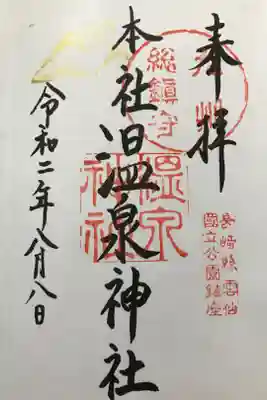 奉拝
長崎縣雲仙
國立公園鎮座
九州
総鎮守
本社温泉神社
温泉
神社
令和二年八月八日